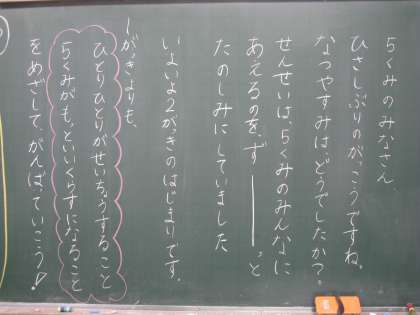 5くみのみなさん
ひさしぶりのがっこうですね。
なつやすみは、どうでしたか?
せんせいは、5くみのみんなに
あえるのを、ずーっと
たのしみにしていました
いよいよ2がっきのはじまりです。
1がっきよりも、
ひとりひとりがせいちょうすること
5くみがもっといいくらすになること
をめざして、がんばっていこう!